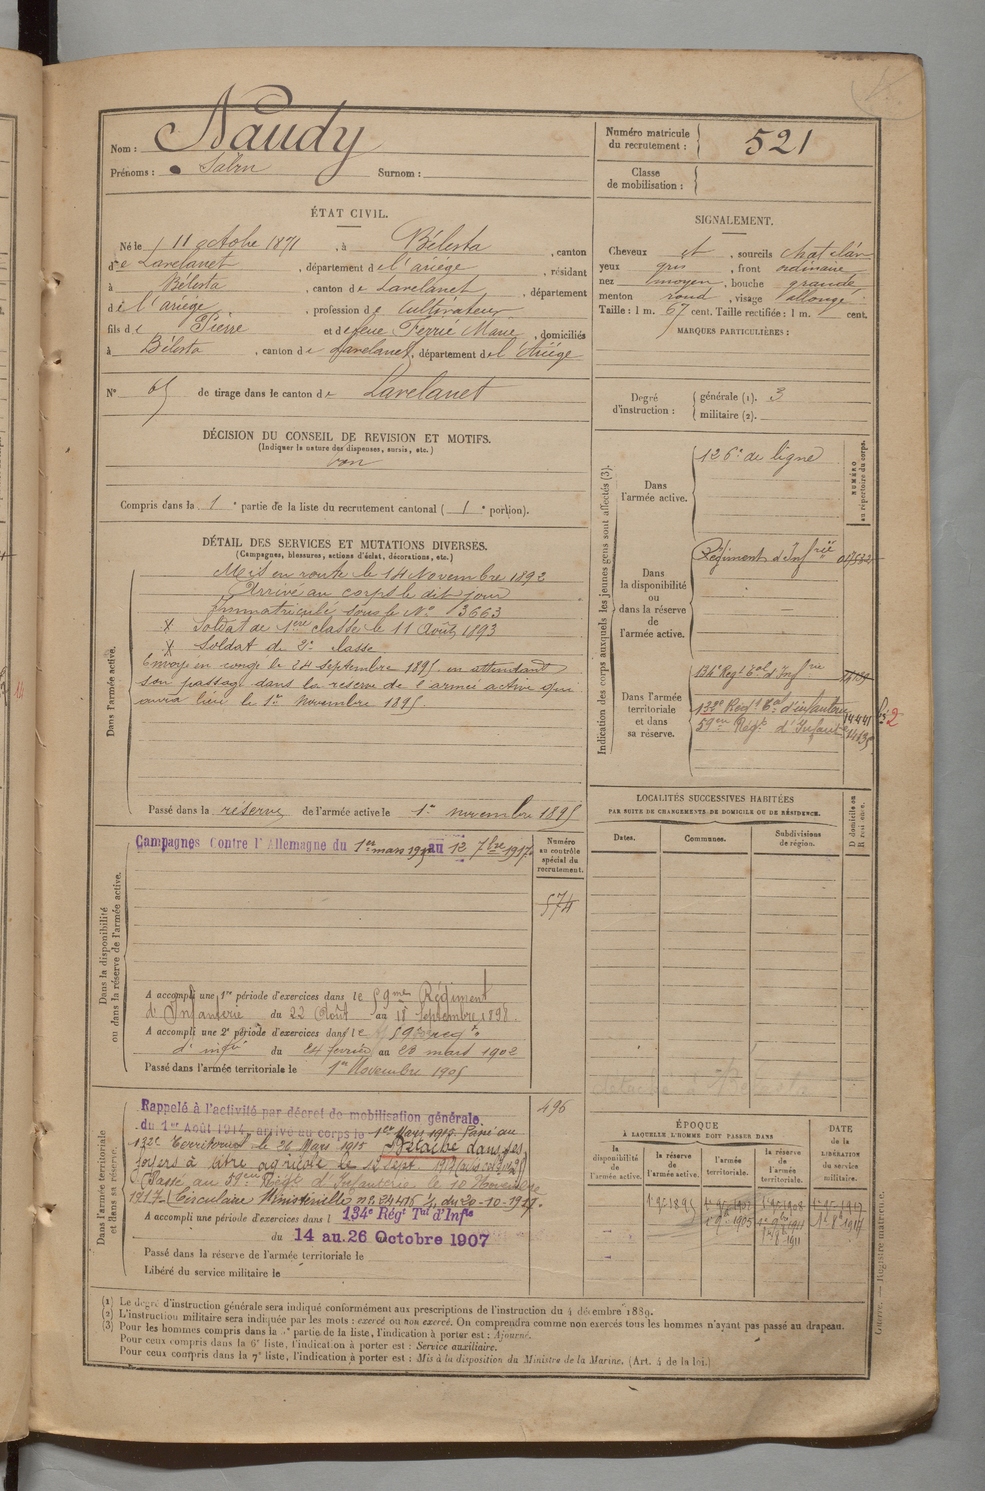 Nom : Naudy
Numéro matricule du recrutement : 521
Prénoms :
Surnom :
Classe de mobilisation :
ÉTAT CIVIL.
Né le 11 octobre 1871, à Bélesta, canton
de Lavelanet, département de l'ariège, résidant
à Bélesta, canton de Lavelanet, département
de l'ariège, profession de Cultivateur
fils de Pierre et de feue Ferrié Marie, domiciliés
à Bélesta, canton de Lavelanet, département de l'Ariège
N° 65 de tirage dans le canton de Lavelanet
DÉCISION DU CONSEIL DE REVISION ET MOTIFS.
(Indiquer la nature des dispenses, sursis, etc.)
bon
Compris dans la 1e partie de la liste du recrutement cantonal (1e portion).
SIGNALEMENT.
Cheveux et, sourcils chat. clair
yeux gris, front ordinaire
nez moyen, bouche grande
menton rond, visage allongé
Taille : 1 m. 67 cent. Taille rectifiée : 1 m. cent.
MARQUES PARTICULIÈRES :
Degré d'instruction :
générale (1). 3
militaire (2).
Indication des corps auxquels les jeunes gens sont affectés (3).
Dans l'armée active.
126e de ligne
NUMÉRO au répertoire du corps.
Dans la disponibilité ou dans la réserve de l'armée active.
Régiment d'Infrie
Dans l'armée territoriale et dans sa réserve.
134e Regt Tal d'Infrie
132e Regt Tal d'infanterie
59ème Régt d'Infant
DÉTAIL DES SERVICES ET MUTATIONS DIVERSES.
(Campagnes, blessures, actions d'éclat, décorations, etc.)
Dans l'armée active.
Mis en route le 14 Novembre 1892
Arrivé au corps le dit jour
Immatriculé sous le N° 3663
X Soldat de 1ère classe le 11 Août 1893
X Soldat de 2e classe
Envoyé en congé le 24 Septembre 1895 en attendant
son passage dans la réserve de l'armée active qui
aura lieu le 1er Novembre 1895.
Passé dans la réserve de l'armée active le 1er novembre 1895
LOCALITÉS SUCCESSIVES HABITÉES
PAR SUITE DE CHANGEMENTS DE DOMICILE OU DE RÉSIDENCE.
Dates.
Communes.
Subdivisions de région.
D domicile ou R résidence.
Dans la disponibilité ou dans la réserve de l'armée active.
Campagnes Contre l'Allemagne du 1er mars 1915 au 12 7bre 1917.
Numéro au contrôle spécial du recrutement.
574
A accompli une 1re période d'exercices dans le 59me Régiment
d'Infanterie du 22 Août au 18 Septembre 1898.
A accompli une 2e période d'exercices dans le 59e regt
d'infie du 24 février au 23 mars 1902
Passé dans l'armée territoriale le 1er Novembre 1905
Dans l'armée territoriale et dans sa réserve.
496
Rappelé à l'activité par décret de mobilisation générale
du 1er Août 1914, arrivé au corps le 1er Mars 1915. Passé au
132e Territorial le 26 Mars 1915 Détaché dans ses
foyers à titre agricole le 12 Sept 1917
Passé au 59ème Regt d'Infanterie le 10 Novembre
1917 (Circulaire Ministérielle n° 24415 du 20-10-1917.
A accompli une période d'exercices dans l 134e Régt Tal d'Infie
du 14 au 26 Octobre 1907
Passé dans la réserve de l'armée territoriale le
Libéré du service militaire le
ÉPOQUE
À LAQUELLE L'HOMME DOIT PASSER DANS
la disponibilité de l'armée active.
la réserve de l'armée active.
l'armée territoriale.
la réserve de l'armée territoriale.
DATE de la LIBÉRATION du service militaire.
(1) Le degré d'instruction générale sera indiqué conformément aux prescriptions de l'instruction du 4 décembre 1889.
(2) L'instruction militaire sera indiquée par les mots : exercé ou non exercé. On comprendra comme non exercés tous les hommes n'ayant pas passé au drapeau.
(3) Pour les hommes compris dans la partie de la liste, l'indication à porter est : Ajourné.
Pour ceux compris dans la 6e liste, l'indication à porter est : Service auxiliaire.
Pour ceux compris dans la 7e liste, l'indication à porter est : Mis à la disposition du Ministre de la Marine. (Art. 4 de la loi.)
Guerre. — Registre matricule.